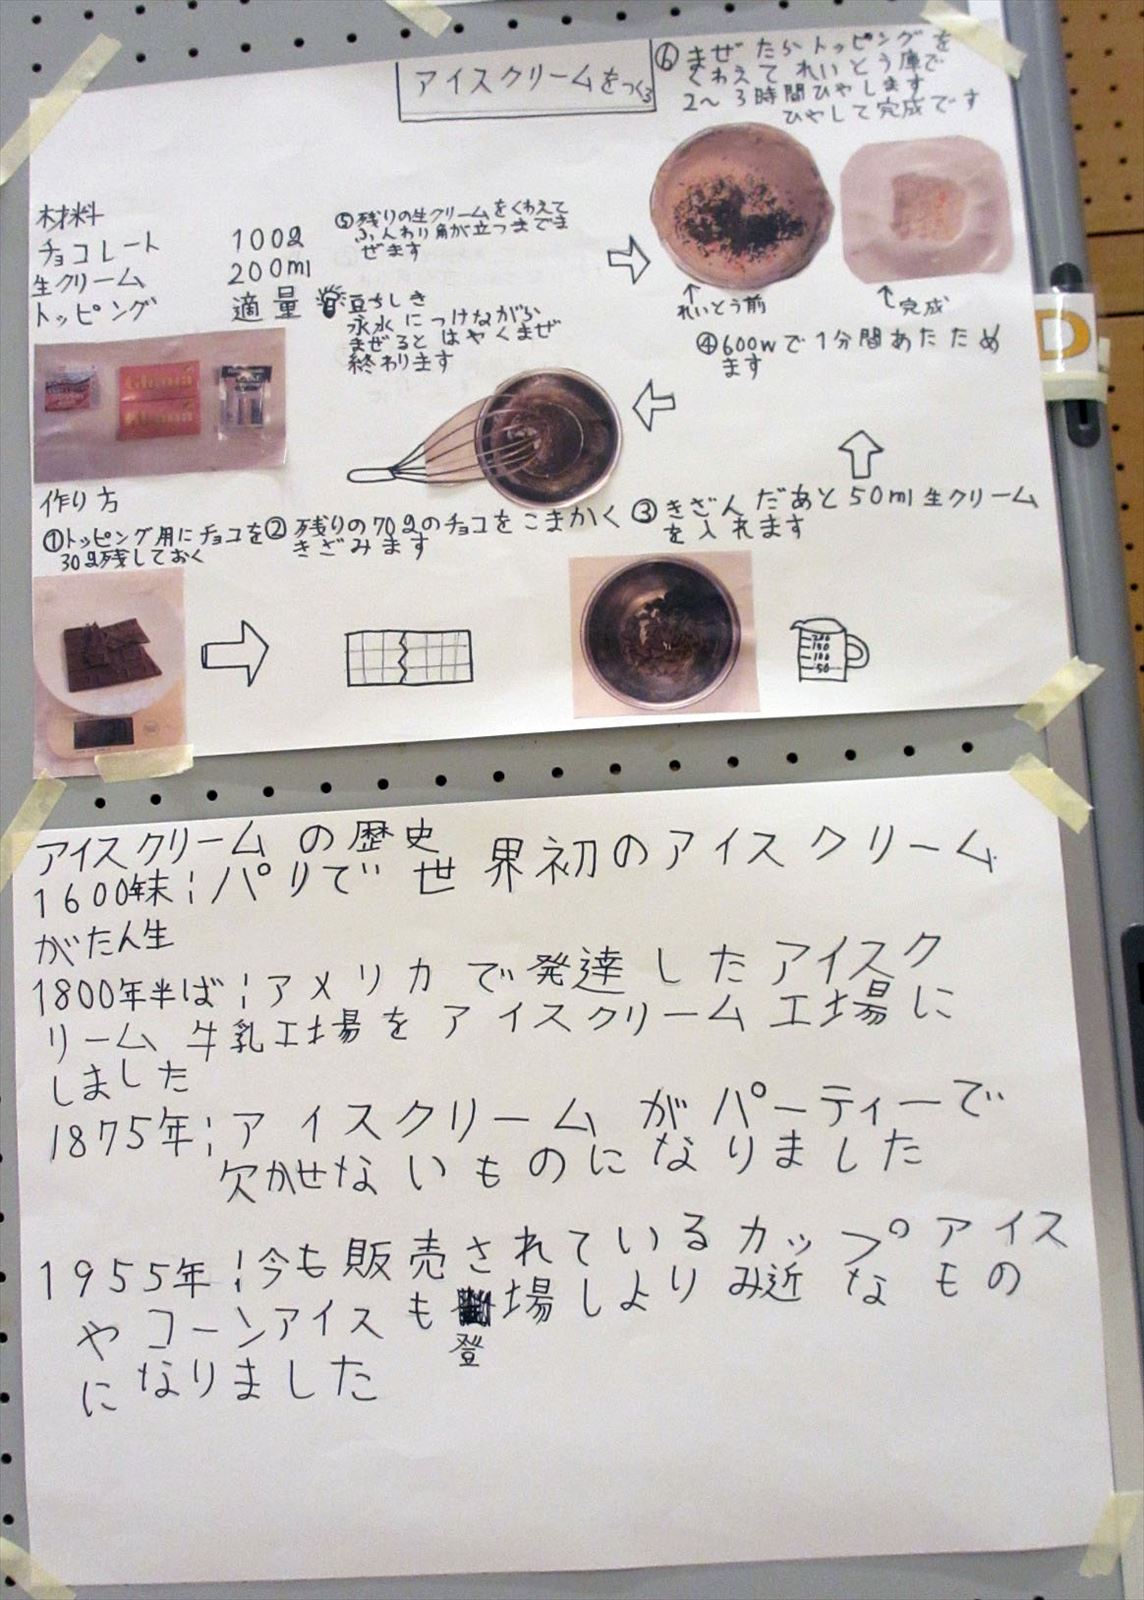 アイスクリームをつくる
材料
チョコレート 100g
生クリーム 200ml
トッピング 適量
作り方
①トッピング用にチョコを
30g残しておく
②残りの70gのチョコをこまかく
きざみます
③きざんだあと50ml生クリーム
を入れます
200
150
100
50
④600wで1分間あたため
ます
⑤残りの生クリームをくわえて
ふんわり角が立つまでま
ぜます
豆ちしき
氷水につけながら
まぜるとはやくまぜ
終わります
⑥まぜたらトッピングを
くわえてれいとう庫で
2〜3時間ひやします
ひやして完成です
↑
れいとう前
↑完成
Ghana
Ghana
D
アイスクリームの歴史
1600年末¦パリで世界初のアイスクリーム
がたん生
1800年半ば¦アメリカで発達したアイスク
リーム、牛乳工場をアイスクリーム工場に
しました
1875年¦アイスクリームがパーティーで
欠かせないものになりました
1955年¦今も販売されているカップアイス
やコーンアイスも登場しよりみ近なもの
になりました